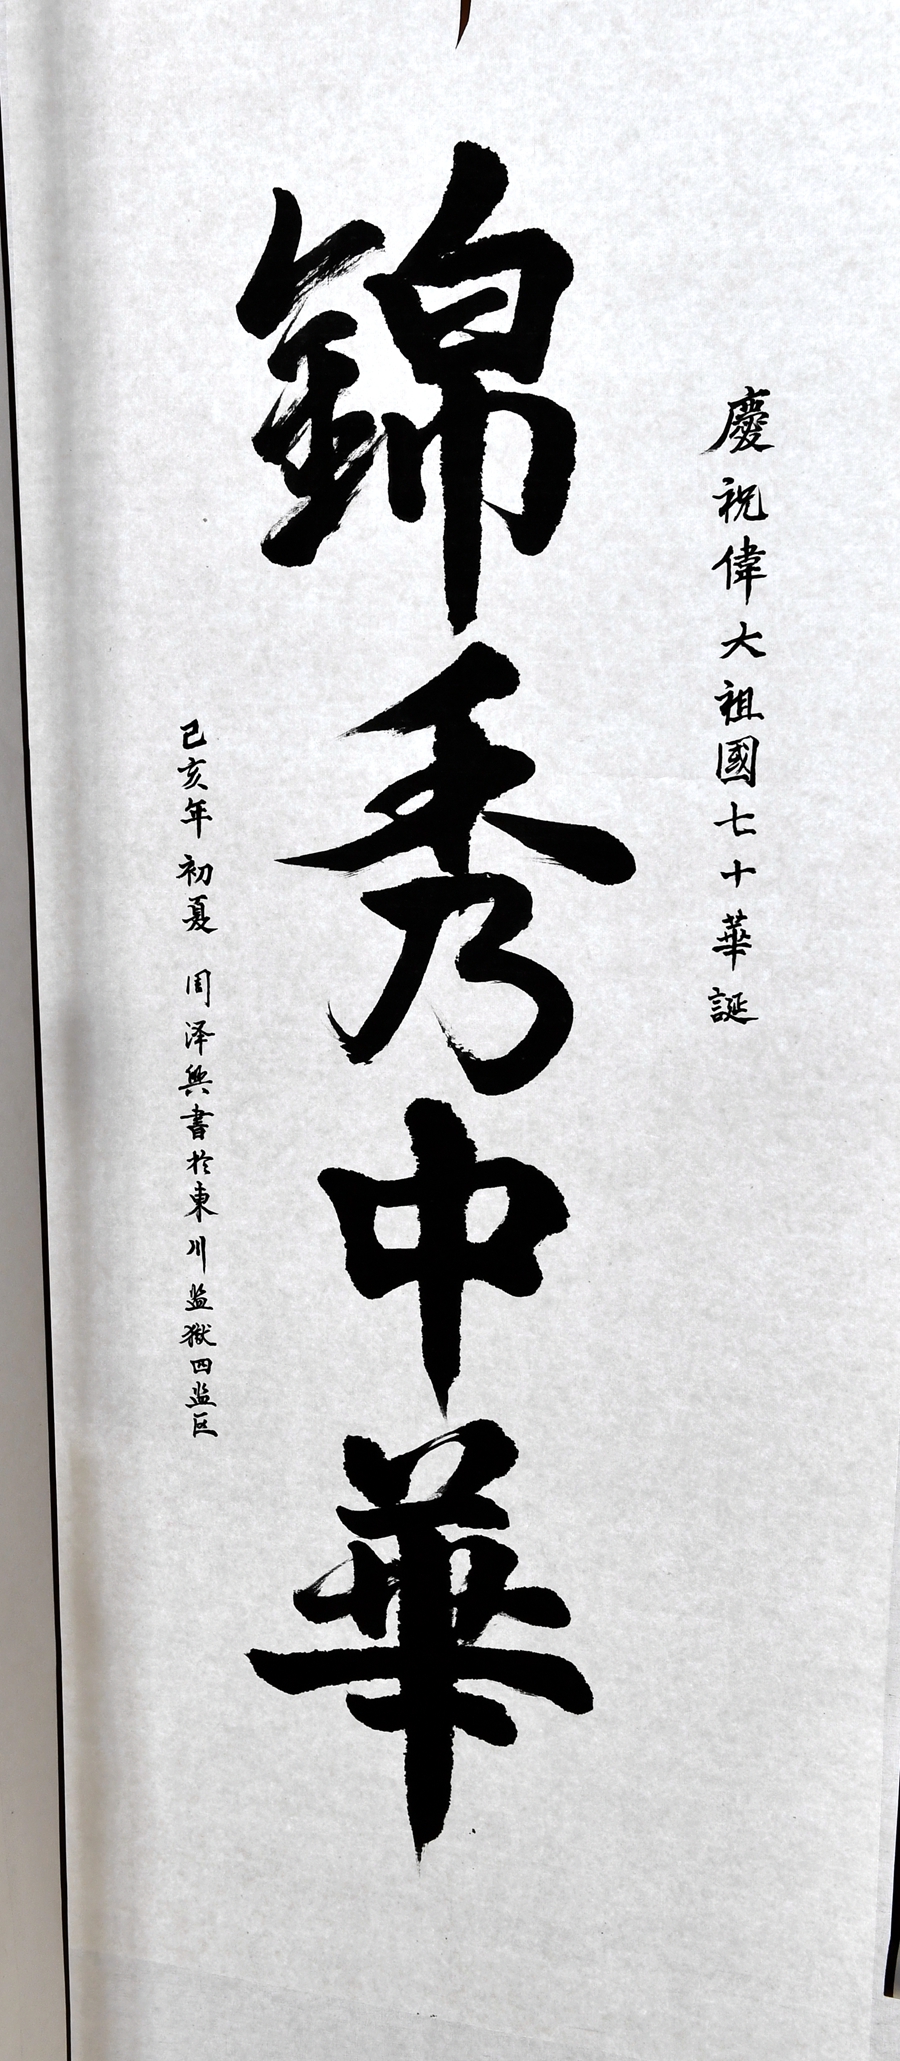 慶祝偉大祖國七十華誕
錦秀中華
己亥年初夏 周泽興書於東川监獄四监区